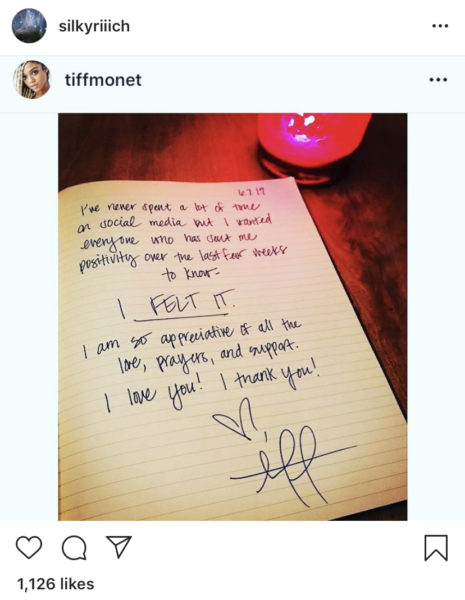 silkyriiich
tiffmonet
6.7.19
I've never spent a lot of time
on social media but I wanted
everyone who has sent me
positivity over the last few weeks
to know-
I FELT IT.
I am so appreciative of all the
love, prayers, and support.
I love you! I thank you!
tiff
1,126 likes